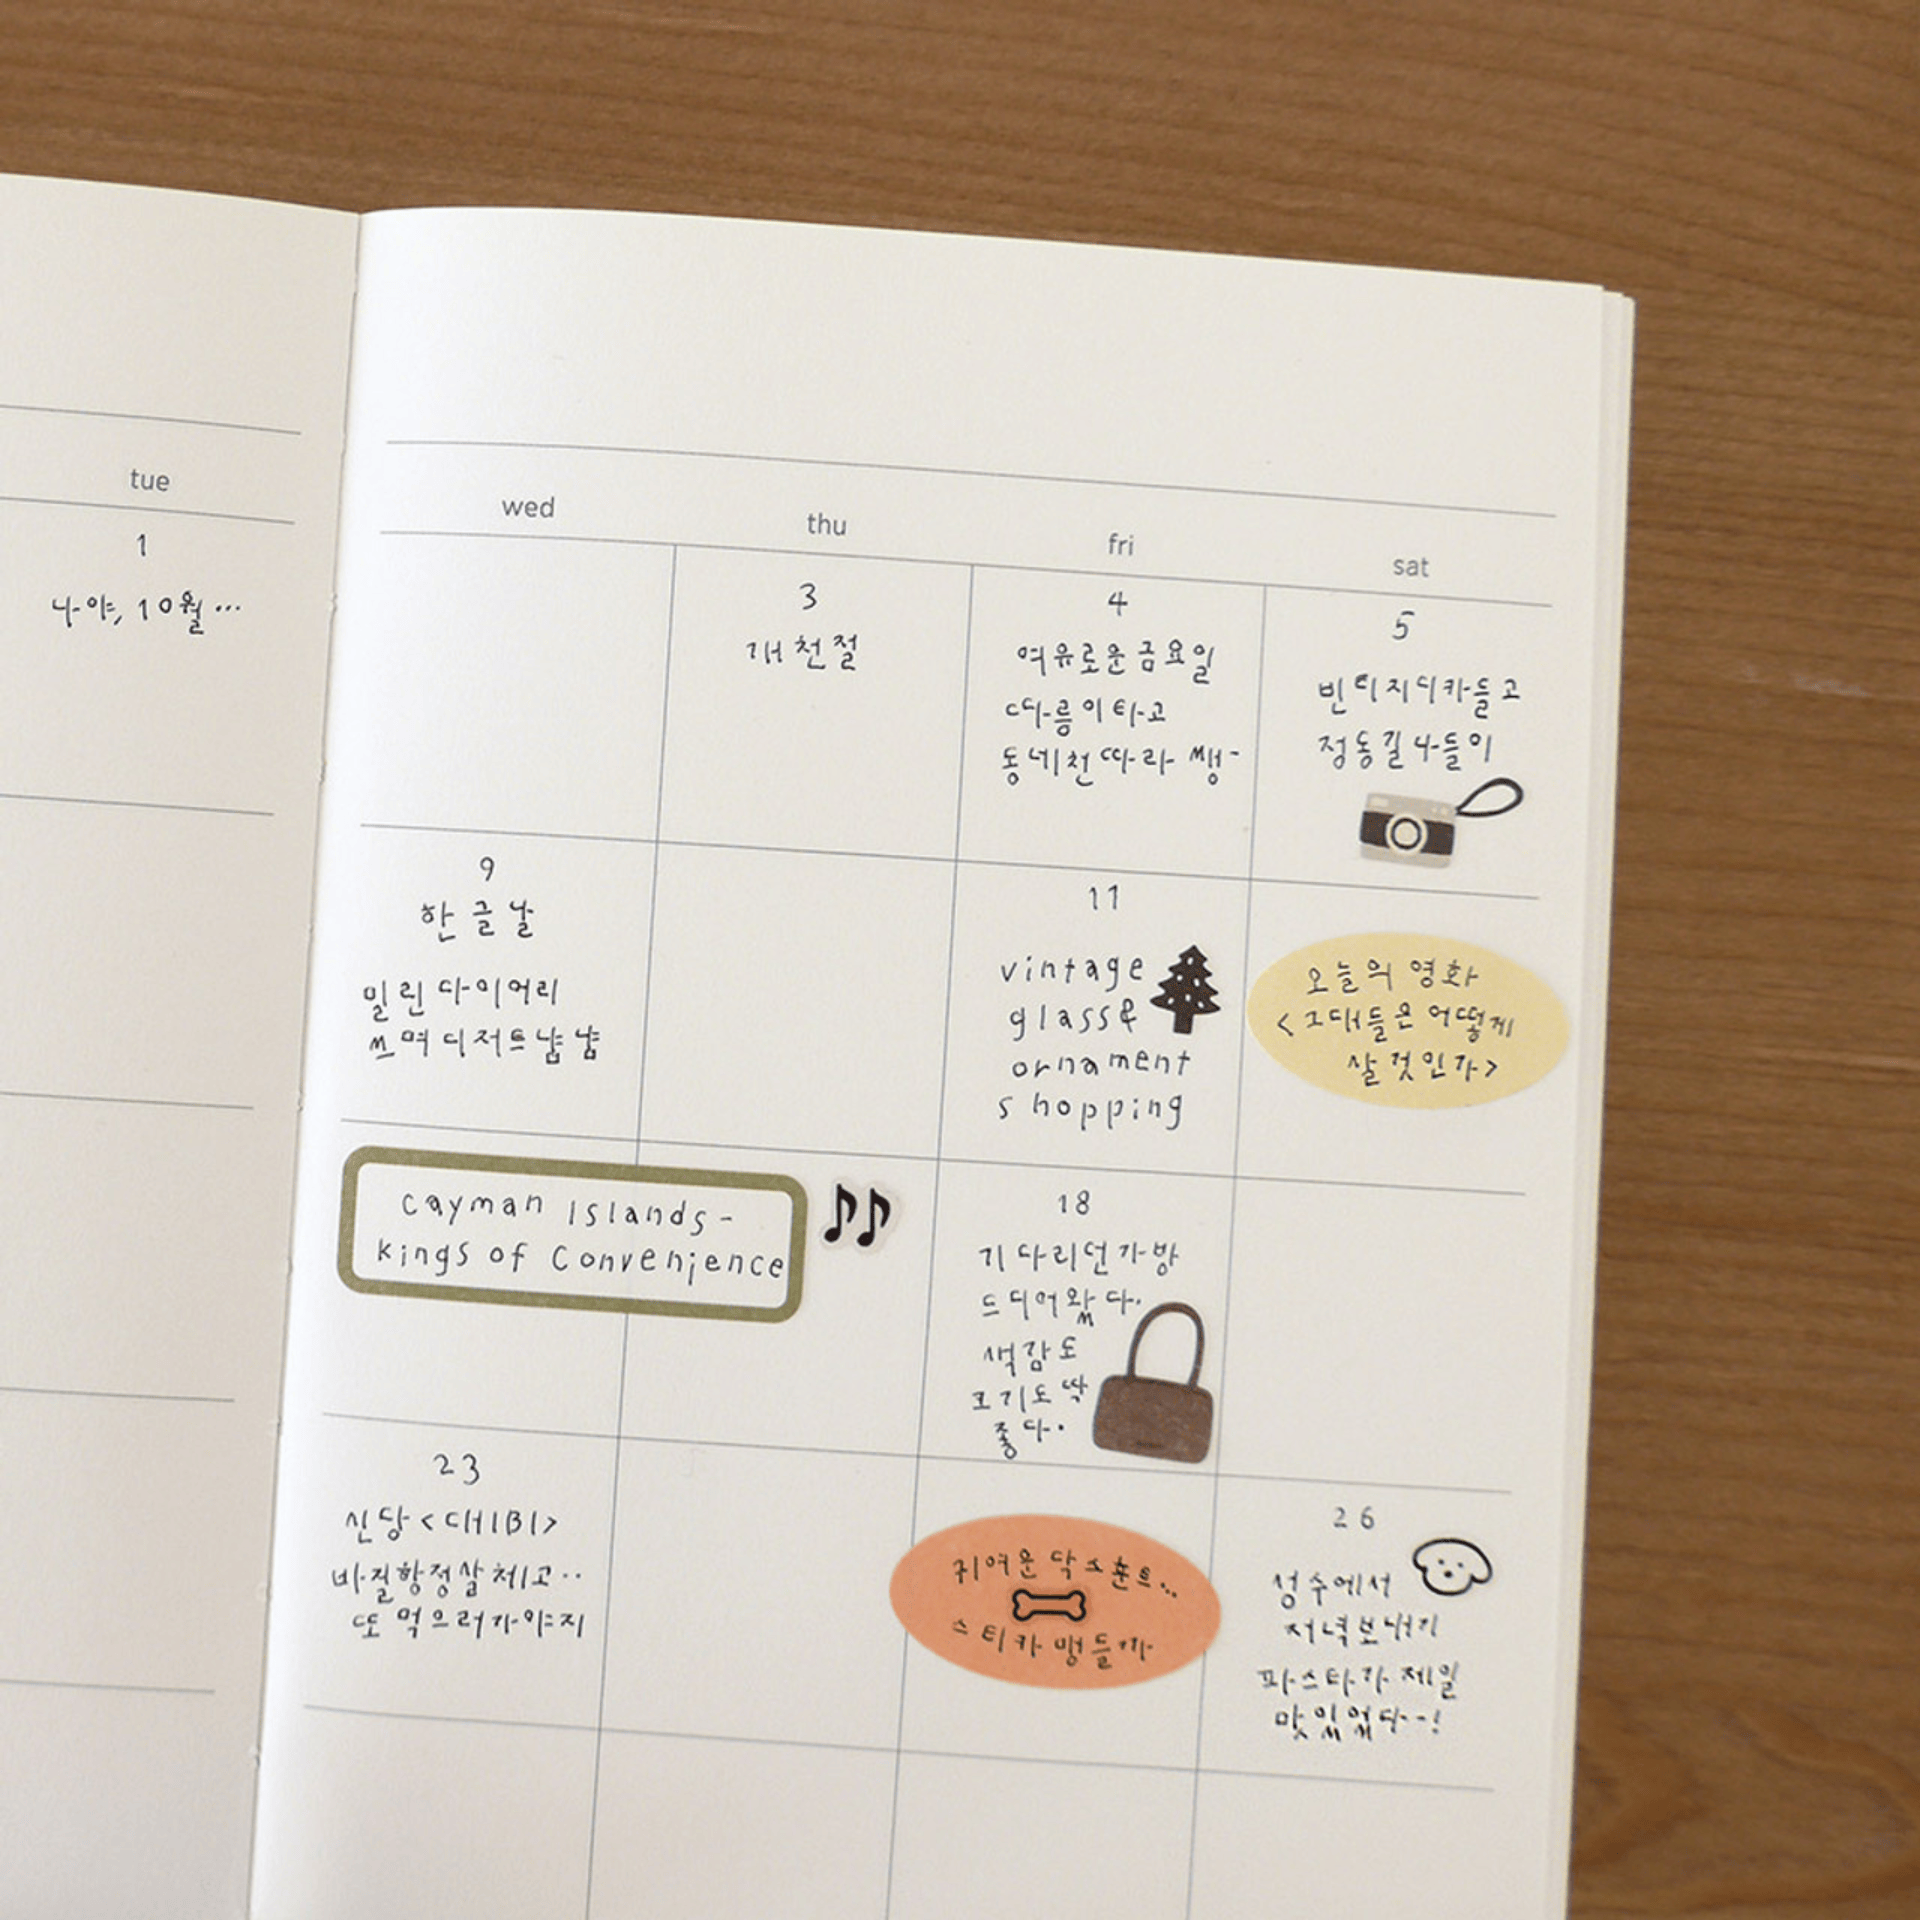 tue
wed
thu
fri
sat
1
나야, 10월...
3
개천절
4
여유로운금요일
따릉이타고
동네천따라 쌩-
5
빈티지디카들고
정동길나들이
9
한글날
밀린다이어리
쓰며디저트냠냠
11
vintage
glass&
ornament
shopping
오늘의 영화
<그대들은어떻게
살것인가>
Cayman Islands-
kings of Convenience
18
기다리던가방
드디어왔다.
색감도
크기도딱
좋다.
23
신당<대비>
바질항정살체고..
또먹으러가야지
귀여운닥스훈트...
스티카맹들까
26
성수에서
저녁보내기
파스타가제일
맛있었다--!